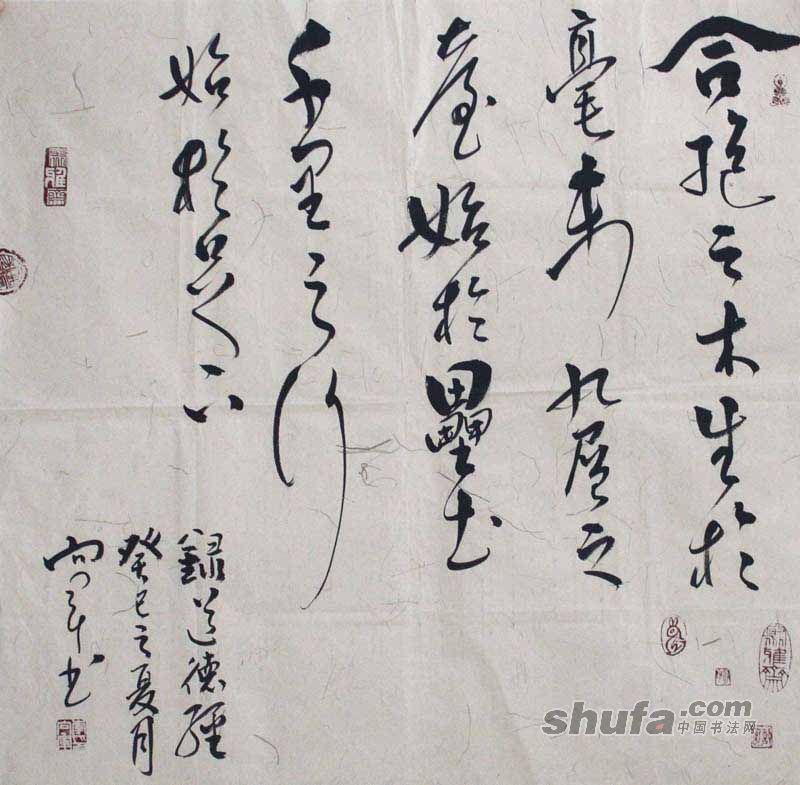 合抱之木生於
毫末九層之
臺始於壘土
千里之行
始於足下
録道德經
癸巳之夏月
書
shufa.com
中国书法网